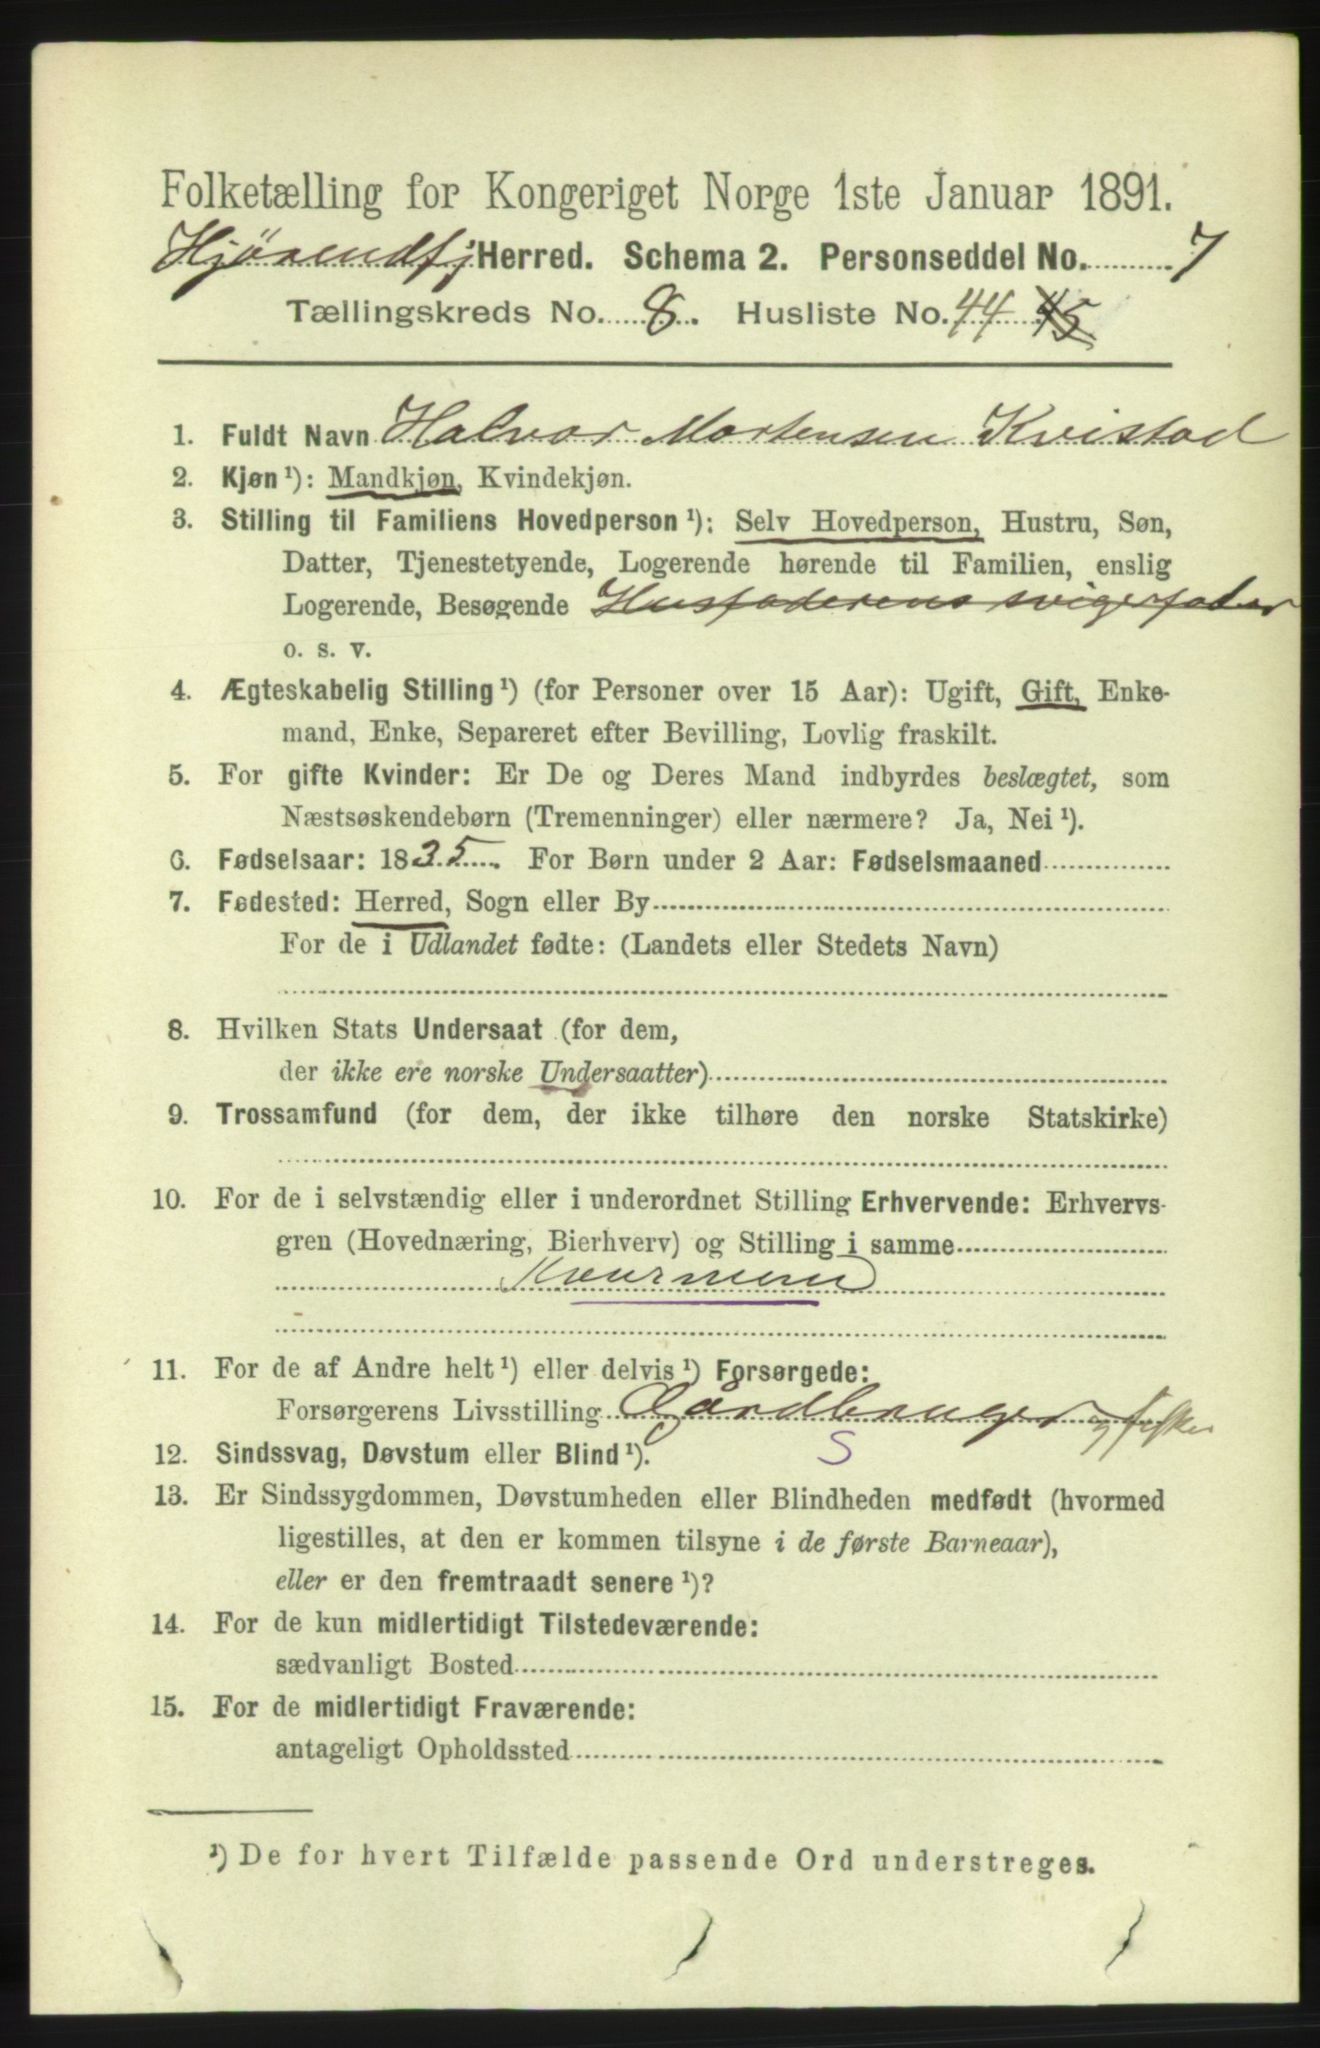 Folketælling for Kongeriget Norge 1ste Januar 1891.
Hjørendfj. Herred. Schema 2. Personseddel No. 7
Tællingskreds No. 8. Husliste No. 44 45
1. Fuldt Navn Halvor Mortensen Kvistad
2. Kjøn ¹): Mandkjøn, Kvindekjøn.
3. Stilling til Familiens Hovedperson ¹): Selv Hovedperson, Hustru, Søn,
Datter, Tjenestetyende, Logerende hørende til Familien, enslig
Logerende, Besøgende Husfaderens svigerfader
o. s. v.
4. Ægteskabelig Stilling ¹) (for Personer over 15 Aar): Ugift, Gift, Enke-
mand, Enke, Separeret efter Bevilling, Lovlig fraskilt.
5. For gifte Kvinder: Er De og Deres Mand indbyrdes beslægtet, som
Næstsøskendebørn (Tremenninger) eller nærmere? Ja, Nei ¹).
6. Fødselsaar: 1835. For Børn under 2 Aar: Fødselsmaaned
7. Fødested: Herred, Sogn eller By
For de i Udlandet fødte: (Landets eller Stedets Navn)
8. Hvilken Stats Undersaat (for dem,
der ikke ere norske Undersaatter)
9. Trossamfund (for dem, der ikke tilhøre den norske Statskirke)
10. For de i selvstændig eller i underordnet Stilling Erhvervende: Erhvervs-
gren (Hovednæring, Bierhverv) og Stilling i samme
Kaarmand
11. For de af Andre helt ¹) eller delvis ¹) Forsørgede:
Forsørgerens Livsstilling Gårdbruger og fisker
12. Sindssvag, Døvstum eller Blind ¹). S
13. Er Sindssygdommen, Døvstumheden eller Blindheden medfødt (hvormed
ligestilles, at den er kommen tilsyne i de første Barneaar),
eller er den fremtraadt senere ¹)?
14. For de kun midlertidigt Tilstedeværende:
sædvanligt Bosted
15. For de midlertidigt Fraværende:
antageligt Opholdssted
¹) De for hvert Tilfælde passende Ord understreges.